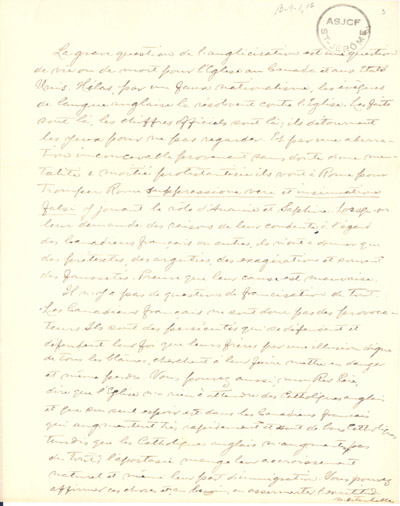 B-9-1,16
3
ASJCF
ST-JÉRÔME
La grave question de l'anglicisation est une question
de vie ou de mort pour l'Eglise au Canada et aux Etats
Unis. Hélas, par un faux nationalisme, les évêques
de langue anglaise la résolvent contre l'Eglise. Les faits
sont là, les chiffres officiels sont là; ils détournent
les yeux pour ne pas regarder. Et par une aberra-
tion inconcevable provenant sans doute d'une men-
talité à moitié protestante ils vont à Rome pour
tromper Rome suppressione veri et insinuatione
falsi et jouant le rôle d'Ananie et Saphire. Lorsqu'on
leur demande des raisons de leur conduite à l'égard
des Canadiens français ou autres, ils n'ont à donner que
des prétextes, des arguties des exagérations et souvent
des faussetés. Preuve que leur cause est mauvaise.
Il n'y a pas de question de francisation du tout.
Les Canadiens français ne sont donc pas des provoca-
teurs. Ils sont des persécutés qui se défendent et
défendent leur foi que leurs frères par une illusion digne
de tous les blâmes, cherchent à leur faire mettre en danger
et même perdre. Vous pouvez aussi, mon Rev Père,
dire que l'Eglise n'a rien à attendre des Catholiques anglais
et que son seul espoir est dans les Canadiens français
qui augmentent très rapidement et sont de bons Catholiques
tandis que les Catholiques anglais n'augmentent pas
du tout; l'apostasie mange leur accroissement
naturel et même leur part d'immigration. Vous pouvez
affirmer ces choses et en assermenter l'exactitude